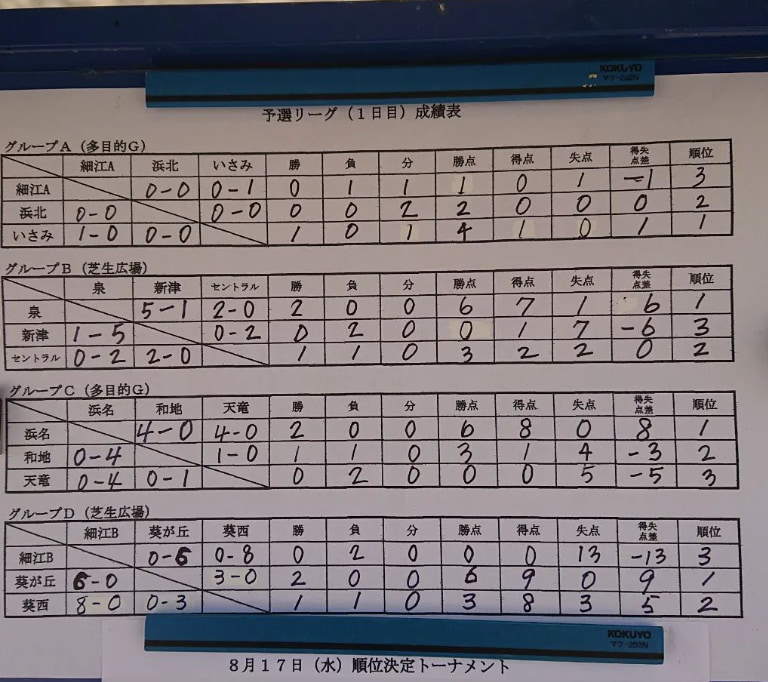 KOKUYO
マク-202N
予選リーグ（１日目）成績表
グループA（多目的G）
細江A 浜北 いさみ 勝 負 分 勝点 得点 失点 得失点差 順位
細江A 0-0 0-1 0 1 1 1 0 1 -1 3
浜北 0-0 0-0 0 0 2 2 0 0 0 2
いさみ 1-0 0-0 1 0 1 4 1 0 1 1
グループB（芝生広場）
泉 新津 セントラル 勝 負 分 勝点 得点 失点 得失点差 順位
泉 5-1 2-0 2 0 0 6 7 1 6 1
新津 1-5 0-2 0 2 0 0 1 7 -6 3
セントラル 0-2 2-0 1 1 0 3 2 2 0 2
グループC（多目的G）
浜名 和地 天竜 勝 負 分 勝点 得点 失点 得失点差 順位
浜名 4-0 4-0 2 0 0 6 8 0 8 1
和地 0-4 1-0 1 1 0 3 1 4 -3 2
天竜 0-4 0-1 0 2 0 0 0 5 -5 3
グループD（芝生広場）
細江B 葵が丘 葵西 勝 負 分 勝点 得点 失点 得失点差 順位
細江B 0-6 0-8 0 2 0 0 0 13 -13 3
葵が丘 6-0 3-0 2 0 0 6 9 0 9 1
葵西 8-0 0-3 1 1 0 3 8 3 5 2
KOKUYO
マク-202N
８月１７日（水）順位決定トーナメント